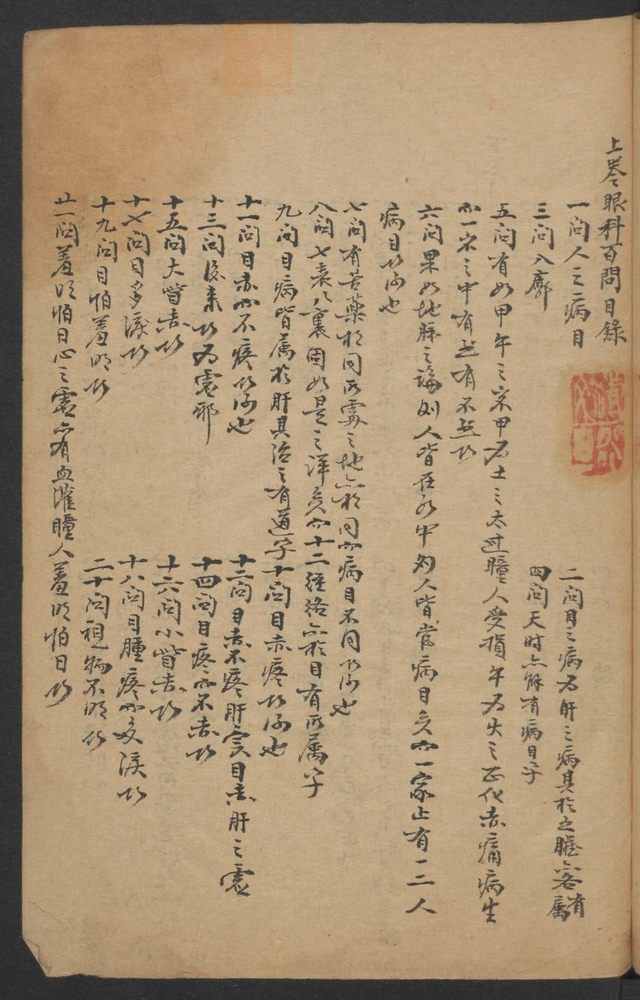 上卷眼科百問目錄
一問人之病目
二問目之病為肝之病其於之臟亦各有屬
三問八廓
四問天時亦能有病目乎
五問有如甲午之歲甲為土之太過瞳人受損午為火之正化赤痛病生
而一家之中有然有不然以
六問果如地脈之論則人皆在水中為人皆當病目矣而一家止有一二人
病目以何也
七問有苦藥於同所處之地亦於同而病目不同以何也
八問七表八裏固如是之詳矣而十二經絡亦於目有所屬乎
九問目病皆屬於肝其治之有道乎
十問目赤疼以何也
十一問目赤而不疼以何也
十二問目赤不疼肝實目赤肝之虛
十三問後来以為虛邪
十四問目疼而不赤以
十五問大眥赤以
十六問小眥赤以
十七問目多淚以
十八問目腫疼而多淚以
十九問目怕羞明以
二十問視物不明以
廿一問羞明怕日心之虛亦有血灌瞳人羞明怕日以